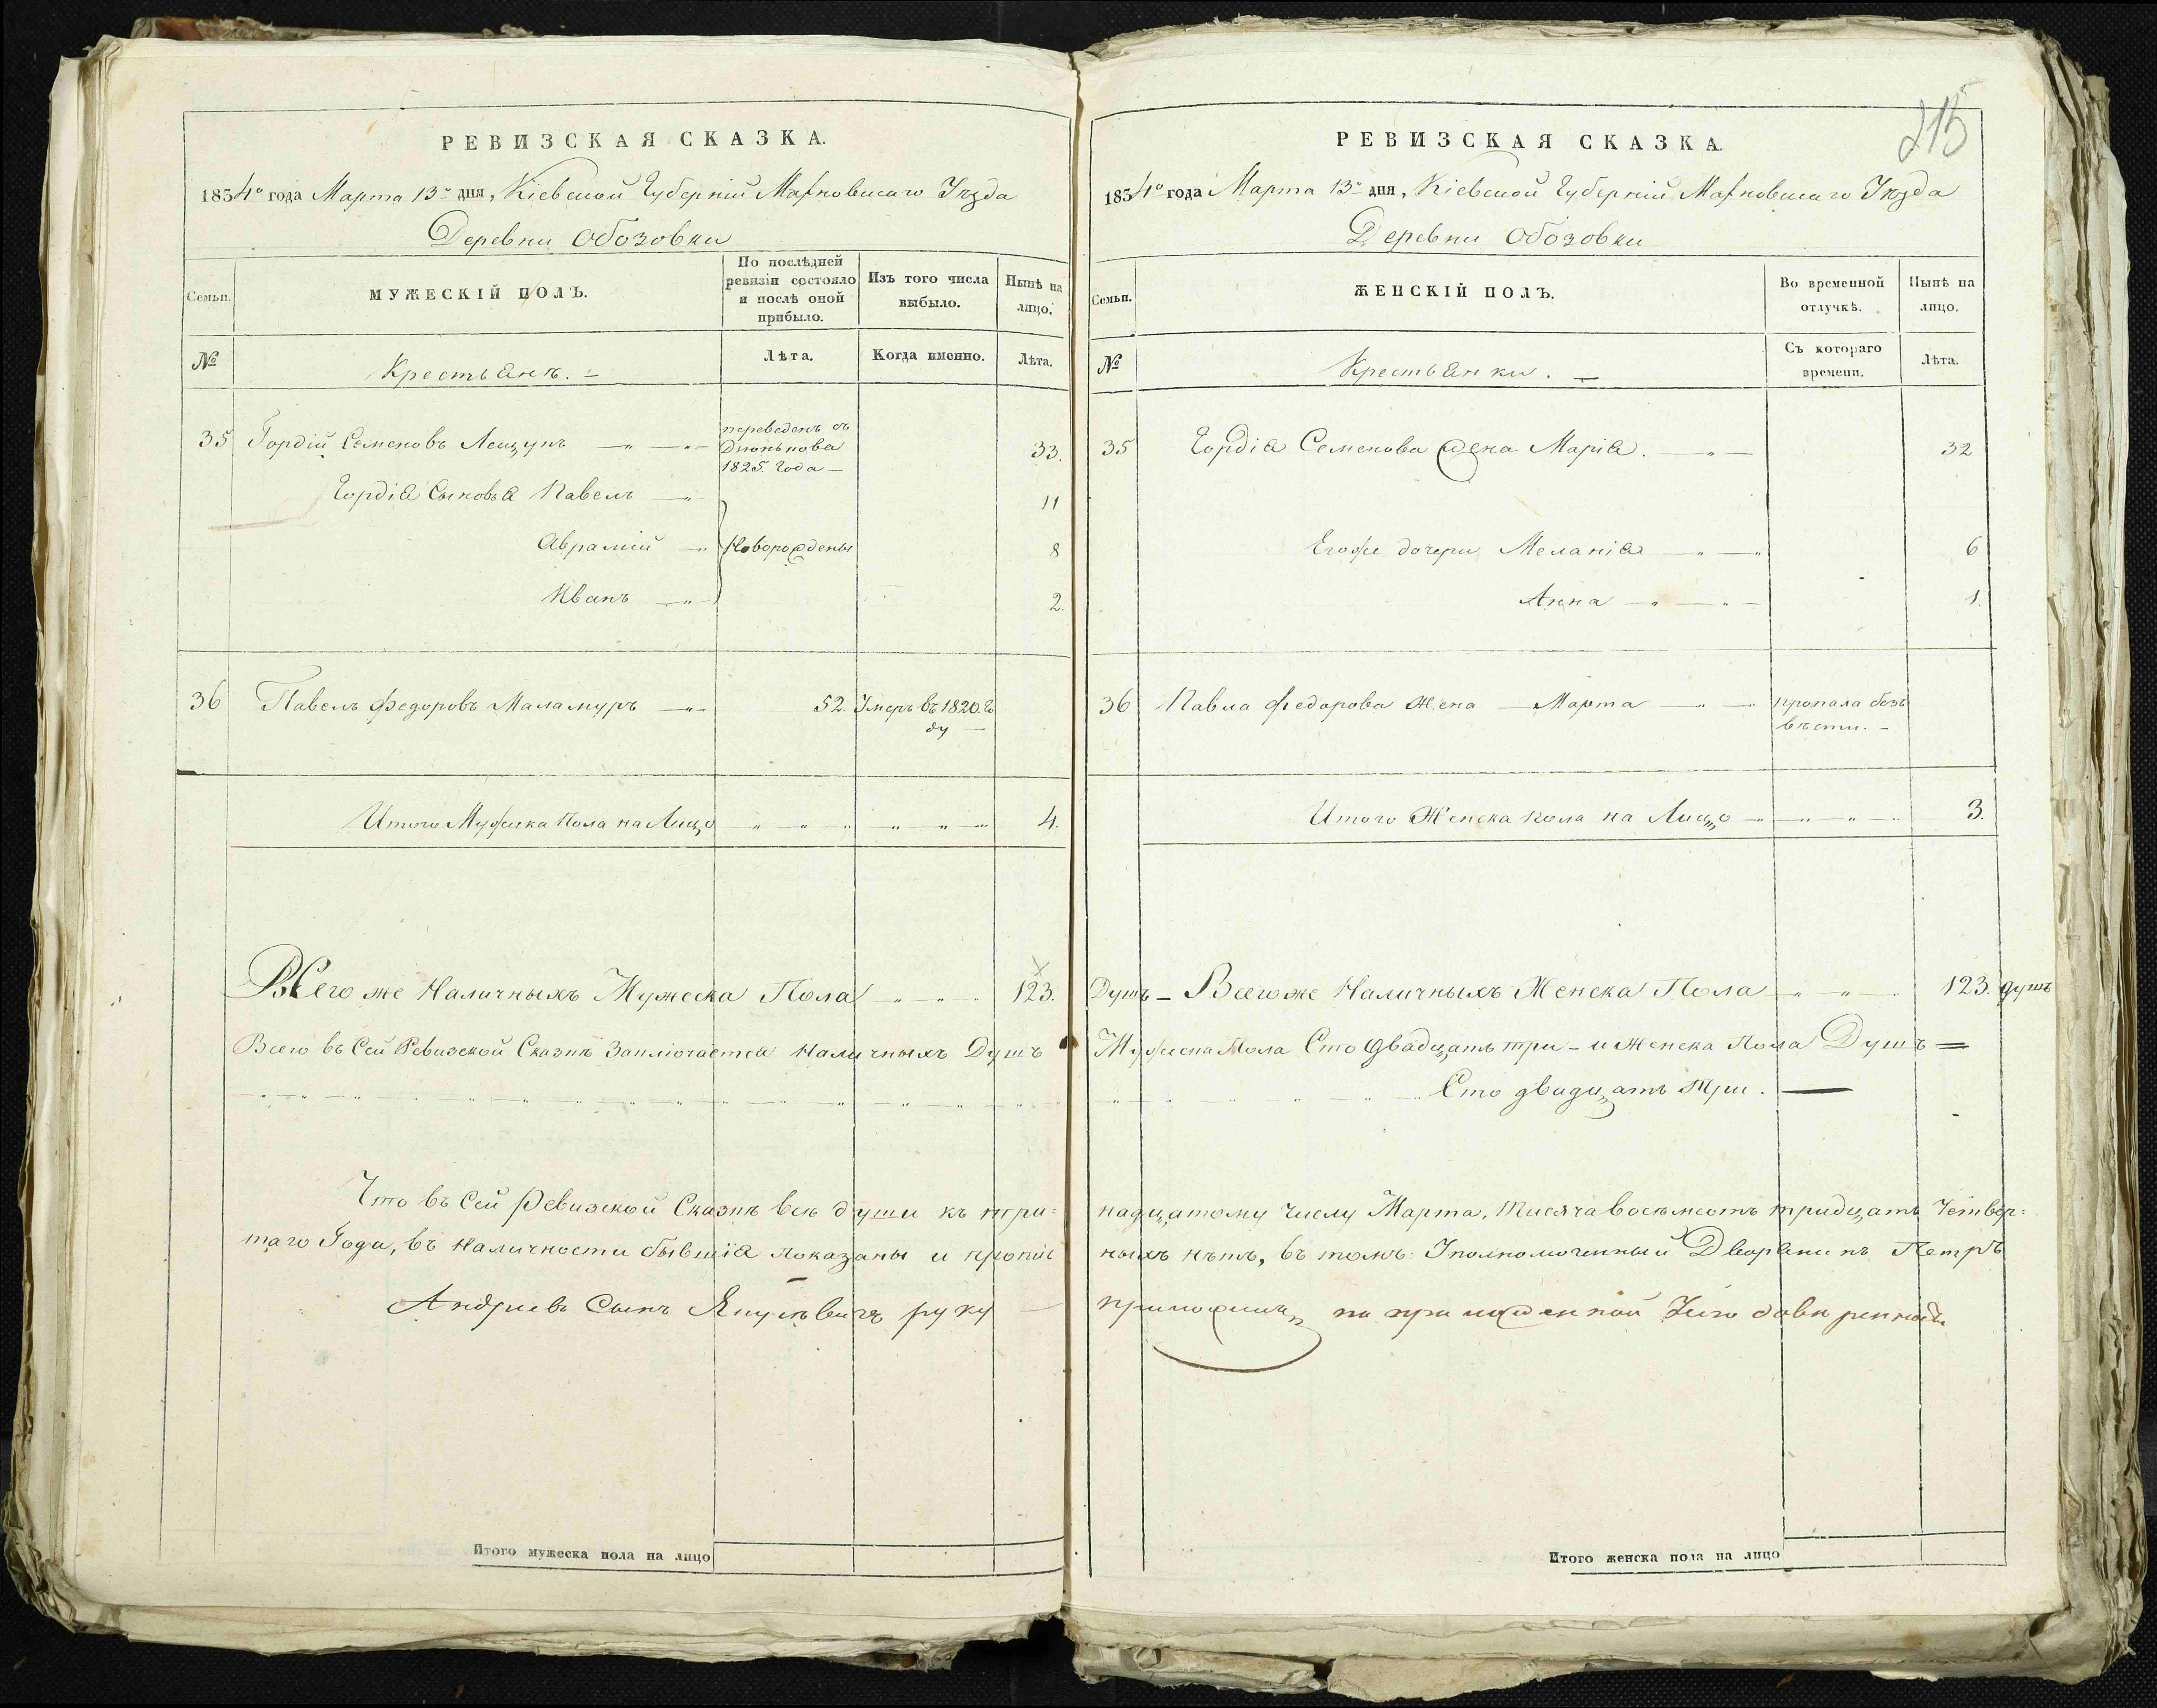 РЕВИЗСКАЯ СКАЗКА.
1834º года Марта 13º дня, Кіевской Губерніи Махновскаго Уѣзда
Деревни Обозовки
Семьи.
МУЖЕСКІЙ ПОЛЪ.
По послѣдней ревизіи состояло и послѣ оной прибыло.
Изъ того числа выбыло.
Нынѣ на лицо.
№
Крестьянъ.
Лѣта.
Когда именно.
Лѣта.
35 Гордій Семеновъ Лещунъ переведенъ съ
1825. Года 33.
Гордія Сыновья Павелъ 11
Аврамій Новорождены 8
Иванъ 2.
36 Павелъ Федоровъ Маламуръ 52. Умеръ въ 1820. Го
ду
Итого Мужеска Пола на Лицо 4.
Всего же Наличныхъ Мужеска Пола 123.
Всего въ Сей Ревизской Сказкѣ Заключается Наличныхъ Душъ
Что въ Сей Ревизской Сказкѣ всѣ души къ три=
таго Года, въ Наличности бывшія показаны и пропис
Андреевъ Сынъ руку
Итого мужеска пола на лицо
215
РЕВИЗСКАЯ СКАЗКА.
1834º года Марта 13º дня, Кіевской Губерніи Махновскаго Уѣзда
Деревни Обозовки
Семьи.
ЖЕНСКІЙ ПОЛЪ.
Во временной отлучкѣ.
Нынѣ на лицо.
№
Крестьянки.
Съ котораго времени.
Лѣта.
35 Гордія Семенова Жена Марія. 32
Егоже дочери Меланія 6
Анна 1.
36 Павла Федорова Жена Марта пропала безъ
вѣсти.
Итого Женска Пола на Лицо 3.
Душъ Всего же Наличныхъ Женска Пола 123. душъ
Мужеска Пола Сто двадцать три - и Женска Пола Душъ =
Сто двадцать три.
надцатому числу Марта, тысяча восемсотъ тридцать Четвер=
ныхъ нѣтъ, въ томъ: Уполномоченный Дворянинъ Петръ
приложилъ по приложенной
Итого женска пола на лицо